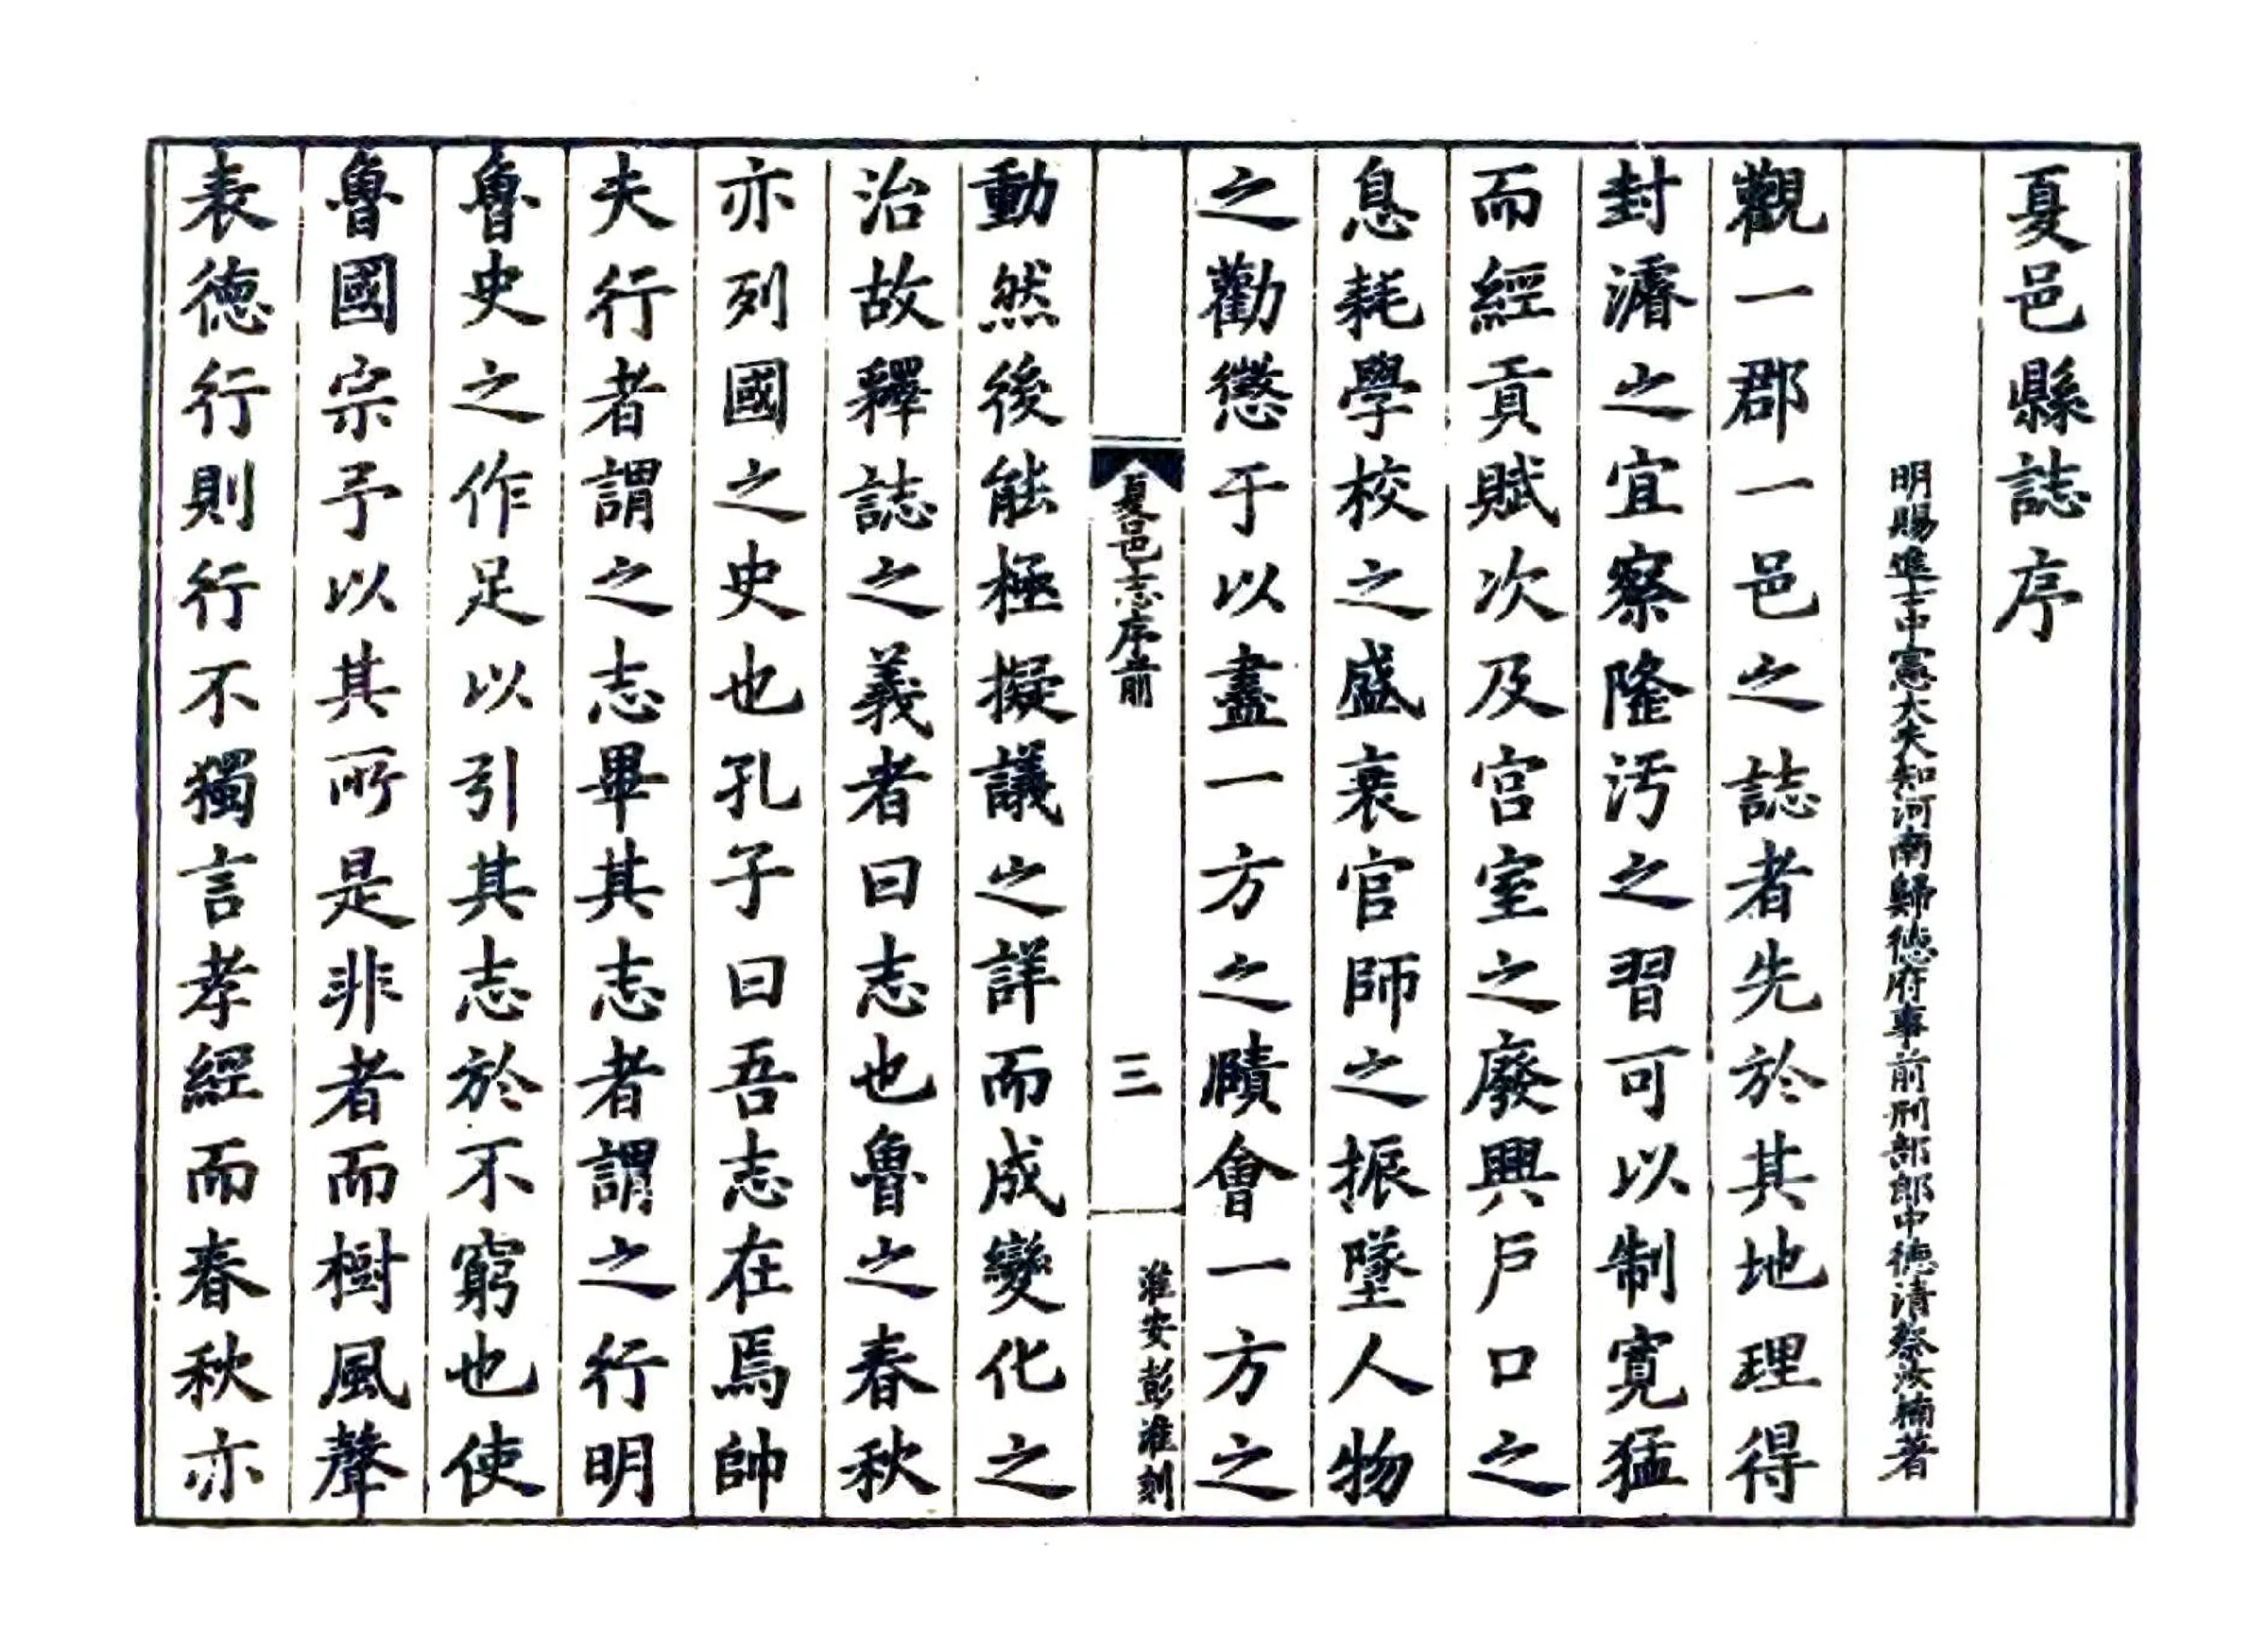 夏邑縣誌序
明賜進士中憲大夫知河南歸德府事前刑部郎中德清蔡汝楠著
觀一郡一邑之誌者先於其地理得
封濬之宜察隆汚之習可以制寬猛
而經貢賦次及宮室之廢興戶口之
息耗學校之盛衰官師之振墜人物
之勸懲于以盡一方之賾會一方之
夏邑志序前
三
淮安彭淮刻
動然後能極擬議之詳而成變化之
治故釋誌之義者曰志也魯之春秋
亦列國之史也孔子曰吾志在焉帥
夫行者謂之志畢其志者謂之行明
魯史之作足以引其志於不窮也使
魯國宗予以其所是非者而樹風聲
表德行則行不獨言孝經而春秋亦